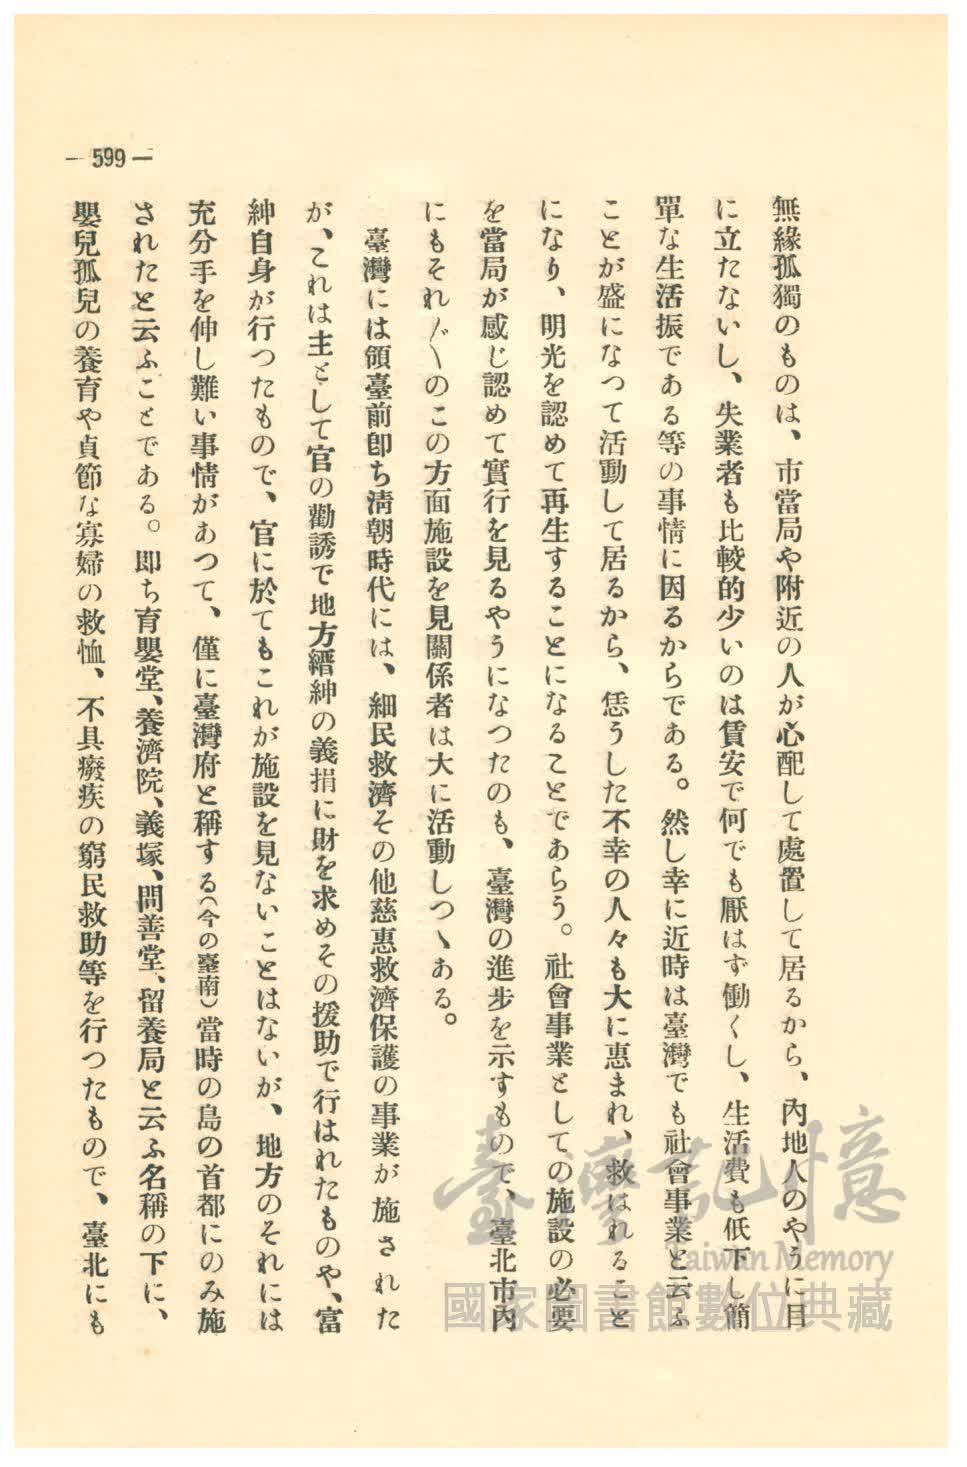 — 599 —
無緣孤獨のものは、市當局や附近の人が心配して處置して居るから、內地人のやうに目
に立たないし、失業者も比較的少いのは賃安で何でも厭はず働くし、生活費も低下し簡
單な生活振である等の事情に因るからである。然し幸に近時は臺灣でも社會事業と云ふ
ことが盛になつて活動して居るから、恁うした不幸の人々も大に惠まれ、救はれること
になり、明光を認めて再生することになることであらう。社會事業としての施設の必要
を當局が感じ認めて實行を見るやうになつたのも、臺灣の進步を示すもので、臺北市內
にもそれ〲のこの方面施設を見關係者は大に活動しつゝある。
臺灣には領臺前卽ち淸朝時代には、細民救濟その他慈惠救濟保護の事業が施された
が、これは主として官の勸誘で地方縉紳の義捐に財を求めその援助で行はれたものや、富
紳自身が行つたもので、官に於てもこれが施設を見ないことはないが、地方のそれには
充分手を伸し難い事情があつて、僅に臺灣府と稱する(今の臺南)當時の島の首都にのみ施
されたと云ふことである。卽ち育嬰堂、養濟院、義塚、問善堂、留養局と云ふ名稱の下に、
嬰兒孤兒の養育や貞節な寡婦の救恤、不具癈疾の窮民救助等を行つたもので、臺北にも
臺灣記憶
Taiwan Memory
國家圖書館數位典藏